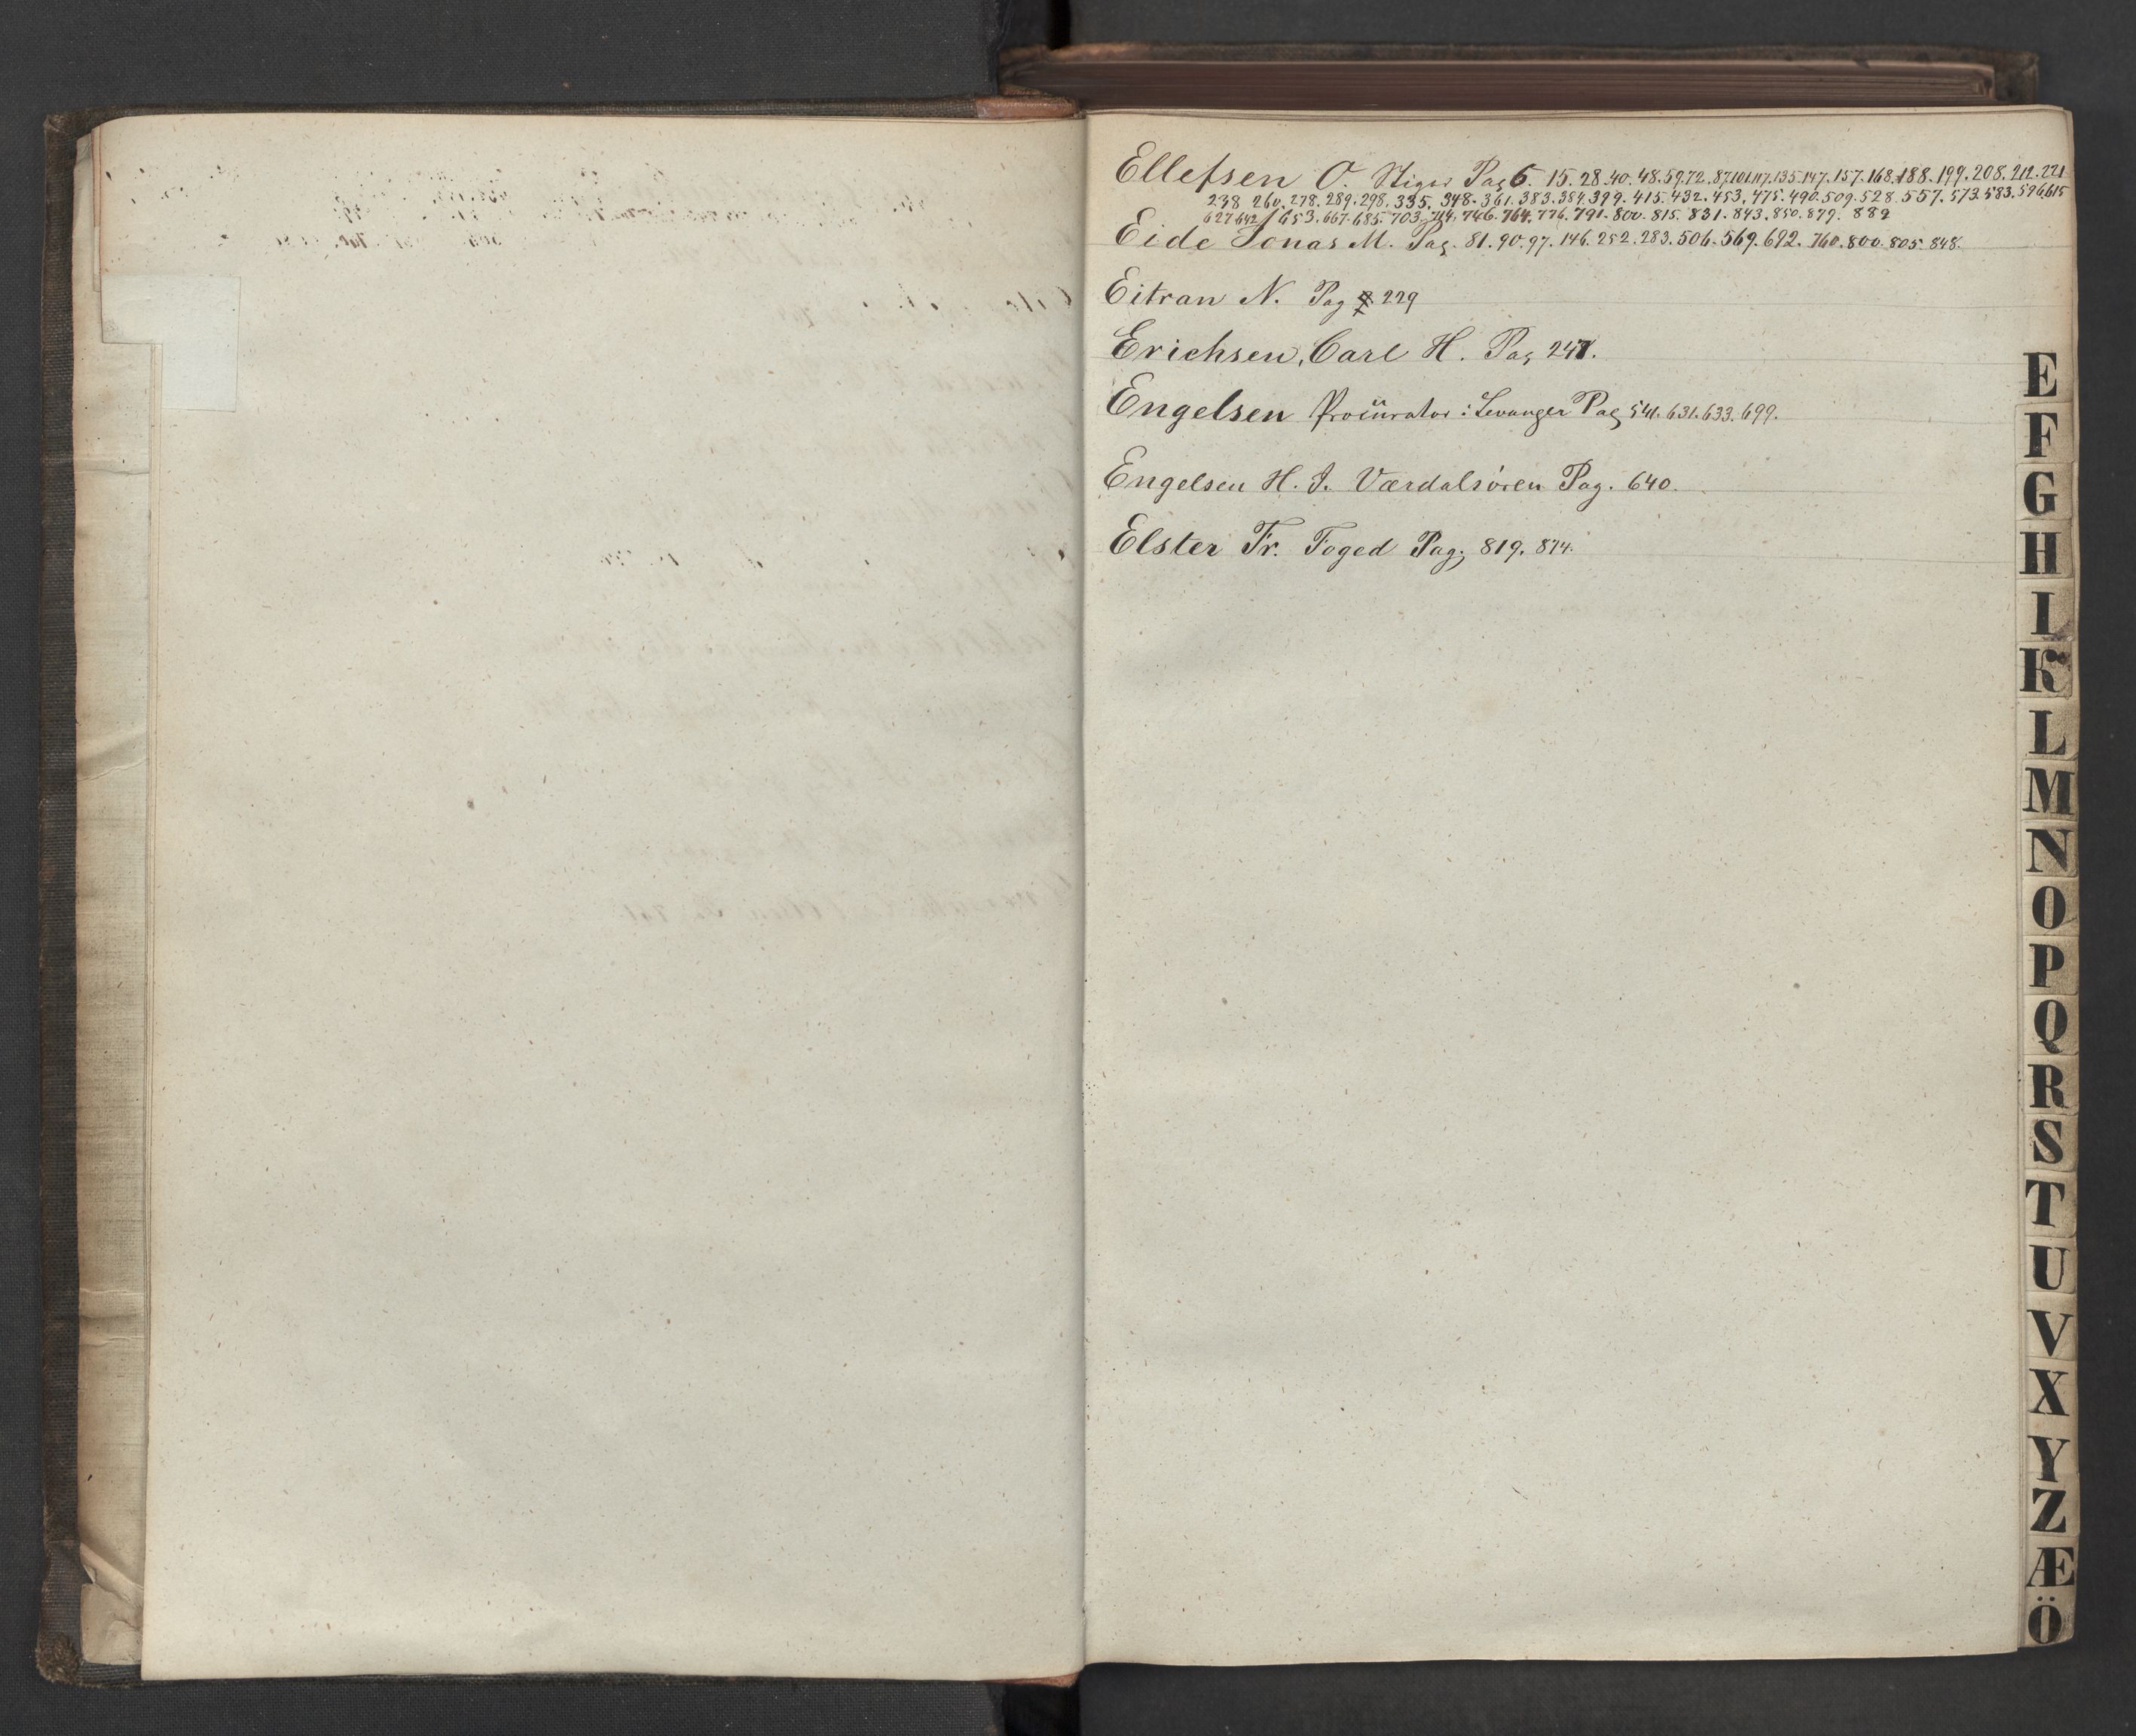 Ellefsen O. Stiger Pag 6. 15. 28. 40. 48. 59. 72. 87. 101. 117. 135. 147. 157. 168. 188. 199. 208. 212. 221
238 260. 278. 289. 298. 335. 348. 361. 383. 384. 399. 415. 432. 453. 475. 490. 509. 528. 557. 573. 583. 596. 615
627 642 653. 667. 685. 703. 714. 746. 764. 776. 791. 800. 815. 831. 843. 850. 879. 889
Eide Jonas M. Pag. 81. 90. 97. 146. 252. 283. 506. 569. 692. 760. 800. 805. 848.
Eitran N. Pag 229
Erichsen, Carl H. Pag 247.
Engelsen Procurator i Levanger Pag 541. 631. 633. 699.
Engelsen H. J. Værdalsören Pag. 640.
Elster Fr. Foged Pag; 819. 874.
E
F
G
H
I
K
L
M
N
O
P
Q
R
S
T
U
V
X
Y
Z
Æ
Ö